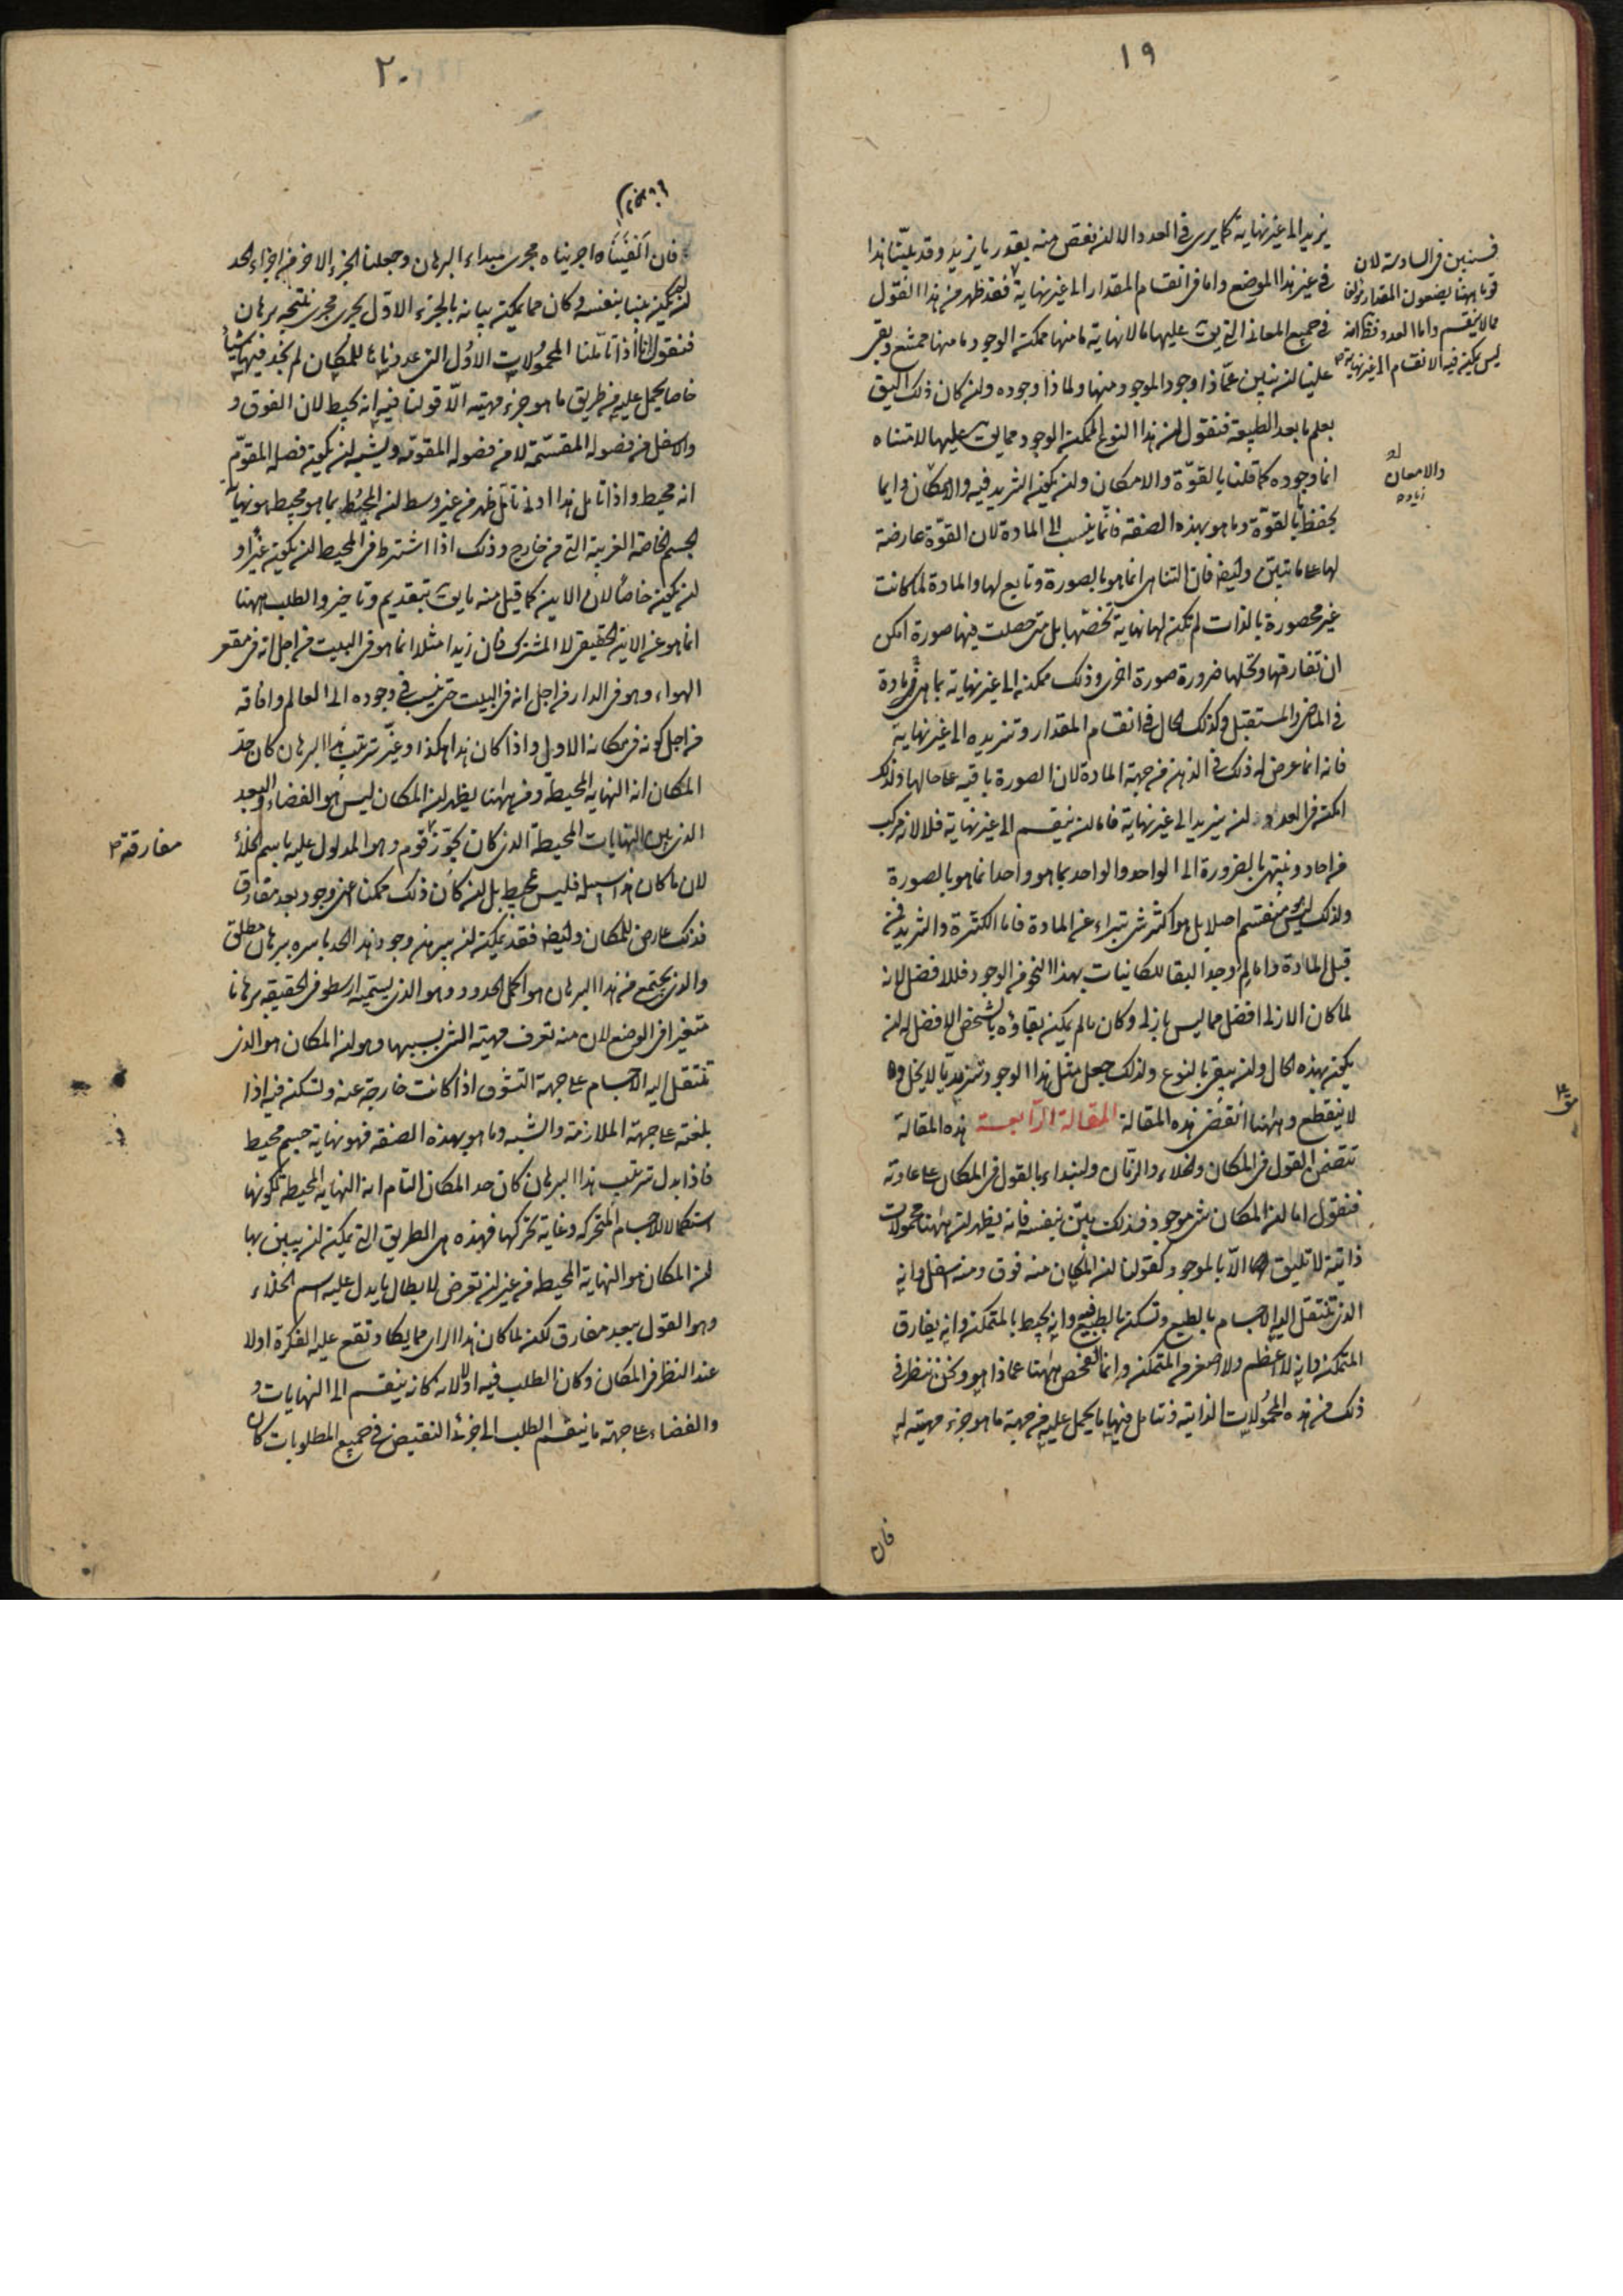 ١٩
يزيد الى غير نهاية كما يرى في العدد الا ان نقص منه بقدر ما يزيد وقد بيّنا هذا
في غير هذا الموضع واما في انقسام المقدار الى غير نهاية فقد ظهر من هذا القول
في جميع المعاني التي يق عليها ما لا نهاية ما منها ممكنة الوجود وما منها ممتنع وبقى
علينا ان نبين عمّا ذا وجود الموجود منها ولما ذا وجوده وان كان ذلك اليق
بعلم ما بعد الطبيعة فنقول ان هذا النوع الممكن الوجود مما يق عليها لا متناه
انما وجوده كما قلنا بالقوّة والامكان وان يكون التزيد فيه والامكان دايما
يحفظ بالقوّة وما هو بهذه الصفة فانّما ينسب الى المادة لان القوّة عارضة
لها على ما تبيّن وايضا فان التناهى انما هو بالصورة وتابع لها والمادة لما كانت
غير محصورة بالذات لم تكن لها نهاية تخصّها بل متى حصلت فيها صورة امكن
ان تفارقها وتحلها ضرورة صورة اخرى وذلك ممكن الى غير نهاية بما هى مادة
في الماضى والمستقبل وكذلك الحال في انقسام المقدار وتزيده الى غير نهاية
فانه انما عرض له ذلك في الذهن من جهة المادة لان الصورة باقية على حالها ولذلك
امكن في العدد ان يزيد الى غير نهاية فاما ان ينقسم الى غير نهاية فلا لانه مركب
من احاد وينتهى بالضرورة الى الواحد والواحد بما هو واحد انما هو بالصورة
ولذلك ليس منقسم اصلا بل هو اكثر شى تبراء عن المادة فاما الكثرة والتزيد فمن
قبل المادة واما لم وجد البقا للكائنات بهذا النحو من الوجود فللافضل لانه
لما كان الازلى افضل مما ليس بازلى وكان ما لم يمكن بقاؤه بالشخص الافضل له ان
يكون بهذه الحال وان يبقى بالنوع ولذلك جعل مثل هذا الوجود سرمديا لا يخل ولا
لا ينقطع وههنا انقضت هذه المقالة المقالة الرابعة هذه المقالة
تتضمن القول في المكان والخلاء والزمان ولنبداء بالقول في المكان على عادته
فنقول اما ان المكان شى موجود فذلك بيّن بنفسه فانه يظهر ان ههنا محمولات
ذاتية لا تليق الا بالموجود كقولنا ان المكان منه فوق ومنه اسفل وانه
الذى تنتقل اليه الاجسام بالطبع وتسكن بالطبع فيه وانه يحيط بالمتمكن وانه يفارق
المتمكن وانه لا اعظم ولا اصغر من المتمكن وانما الفحص ههنا عما ذا هو ونحن ننظر في
ذلك من هذه المحمولات الذاتية فنتامل فيها ما يحمل عليه من جهة ما هو جزء مهيته له
فسنبين في السادسة لان
قوما ههنا يضعون المقدار مؤلفا
مما لا ينقسم واما العدد فظ انه
ليس يمكن فيه الانقسام الى غير نهاية
والامعان
زياده
فان
٢٠
فان الفيناه اجريناه مجرى مبداء البرهان وجعلنا الجزء الاخر من اجزاء الحد
ان لم يكن بينا بنفسه وكان مما يمكن بيانه بالجزء الاوّل يجرى مجرى نتيجة برهان
فنقول انا اذا تاملنا المحمولات الاول التى عددناها للمكان لم نجد فيها شيئا
خاصا يحمل عليه من طريق ما هو جزء مهيته الّا قولنا فيه انه يحيط لان الفوق و
والاسفل من فصوله المقسّمة لا من فصوله المقومة ويشبه ان يكون فصله المقوّم
انه محيط واذا تامل هذا ادنى تامّل ظهر من غير وسط ان المحيط بما هو محيط هو نهاية
الجسم الخاصة الغريبة التى من خارج وذلك اذا اشترط في المحيط ان يكون غيرا و
ان يكون خاصا لان الاين كما قيل منه ما يق بتقديم وتاخير والطلب ههنا
انما هو عن الاين الحقيقى لا المشترك فان زيدا مثلا انما هو في البيت من اجل انه في مقعر
الهواء وهو في الدار من اجل انه في البيت حتى ينسب في وجوده الى العالم وافاقه
من اجل كونه في مكانه الاول واذا كان هذا هكذا وغيّر ترتيب هذا البرهان كان حدّ
المكان انه النهاية المحيطة ومن ههنا يظهر ان المكان ليس هو الفضاء والبعد
الذى بين النهايات المحيطة الذى كان يجوّز قوم وهو المدلول عليه باسم الخلأ
لان ما كان هذا سبيله فليس بمحيط بل ان كان ذلك ممكنا اعنى وجود بعد مفارق
فذلك عارض للمكان وايضا فقد يمكن ان يبرهن وجود هذا الحد باسره ببرهان مطلق
والذى يجتمع من هذا البرهان هو اكمل الحدود وهو الذى يسميه ارسطو في الحقيقة برهانا
متغيرا في الوضع لان منه تعرف مهية الشى بسببها وهو ان المكان هو الذى
تنتقل اليه الاجسام على جهة التشوق اذا كانت خارجة عنه وتسكن فيه اذا
بلغته على جهة الملازمة والشبه وما هو بهذه الصفة فهو نهاية جسم محيط
فاذا بدل ترتيب هذا البرهان كان حد المكان التام انه النهاية المحيطة لكونها
استكمالا للاجسام المتحركة وغاية تحركها فهذه هى الطريق التى يمكن ان يتبين بها
ان المكان هو النهاية المحيطة من غير ان نعرض لابطال ما يدل عليه اسم الخلاء
وهو القول ببعد مفارق لكن لما كان هذا الراى مما يكاد تقع عليه الفكرة اولا
عند النظر في المكان وكان الطلب فيه اولا لانه كانه ينقسم الى النهايات و
والفضاء على جهة ما ينقسم الطلب الى جزئى النقيض في جميع المطلوبات كان
مفارقته